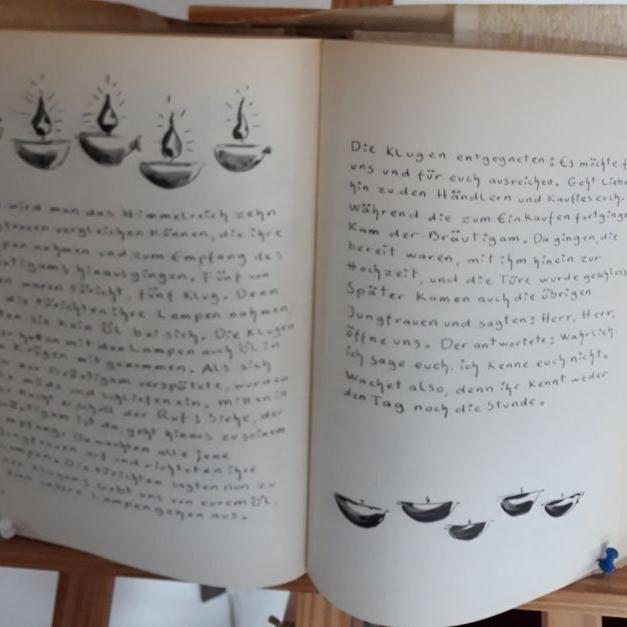 wird man das Himmelreich zehn
vergleichen können, die ihre
nahmen und zum Empfang des
hinausgingen. Fünf von
waren töricht, fünf klug. Denn
die törichten ihre Lampen nahmen,
sie kein Öl bei sich. Die Klugen
hatten mit den Lampen auch Öl in
Krügen mit genommen. Als sich
der Bräutigam verspätete, wurden
müde und schliefen ein. Mitten in
Nacht erscholl der Ruf: Siehe, der
ist da, geht hinaus zu seinem
Da wachten alle jene
auf und richteten ihre
Die törichten sagten nun zu
Klugen: Gebt uns von eurem Öl,
unsere Lampen gehen aus.
Die Klugen entgegneten: Es möchte f
uns und für euch ausreichen. Geht Liebe
hin zu den Händlern und Kauftes euch.
Während die zum Einkaufen fortginge
Kam der Bräutigam. Da gingen, die
bereit waren, mit ihm hinein zur
Hochzeit, und die Türe wurde geschloss
Später Kamen auch die übrigen
Jungfrauen und sagten: Herr, Herr,
öffne uns. Der antwortete: Wahrlich.
ich sage euch, ich Kenne euch nicht.
Wachet also, denn ihr Kennt weder
den Tag noch die Stunde.